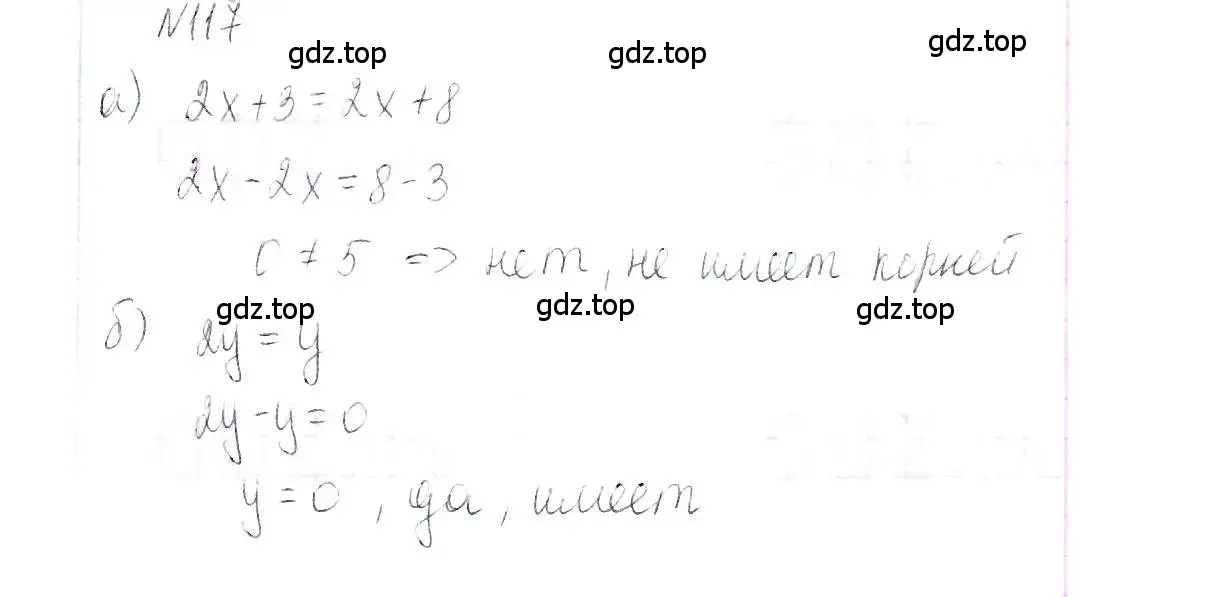 N117
gdz.top gdz.top gdz.top
а) 2x+3=2x+8
2x-2x=8-3
0 ≠ 5 => нет, не имеет корней
gdz.top gdz.top gdz.top
б) 2y = y
2y-y=0
y=0, да, имеет